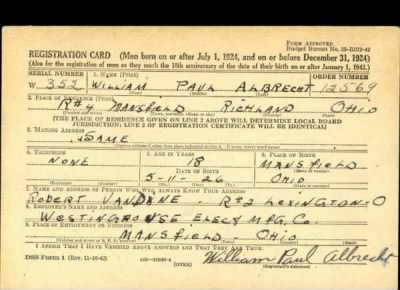 FORM APPROVED
REGISTRATION CARD (Men born on or after July 1, 1924, and on or before December 31, 1924)
(Also for the registration of men as they reach the 18th anniversary of the date of their birth on or after January 1, 1943.)
SERIAL NUMBER 1. NAME (Print) ORDER NUMBER
W 352 WILLIAM PAUL ALBRECHT 12569
(First) (Middle) (Last)
2. PLACE OF RESIDENCE (Print)
R#4 MANSFIELD RICHLAND OHIO
[THE PLACE OF RESIDENCE GIVEN ON LINE 2 ABOVE WILL DETERMINE LOCAL BOARD
JURISDICTION; LINE 2 OF REGISTRATION CERTIFICATE WILL BE IDENTICAL]
3. MAILING ADDRESS
SAME
4. TELEPHONE 5. AGE IN YEARS 6. PLACE OF BIRTH
NONE 18 MANSFIELD
DATE OF BIRTH
5-11-26 OHIO
7. NAME AND ADDRESS OF PERSON WHO WILL ALWAYS KNOW YOUR ADDRESS
ROBERT VANDANE - R#2 LEXINGTON-O
8. EMPLOYER'S NAME AND ADDRESS
WESTINGHOUSE ELEC & MFG. CO
9. PLACE OF EMPLOYMENT OR BUSINESS
MANSFIELD - OHIO
I AFFIRM THAT I HAVE VERIFIED ABOVE ANSWERS AND THAT THEY ARE TRUE.
DSS Form 1 (Rev. 11-16-42) (OVER) William Paul Albrecht